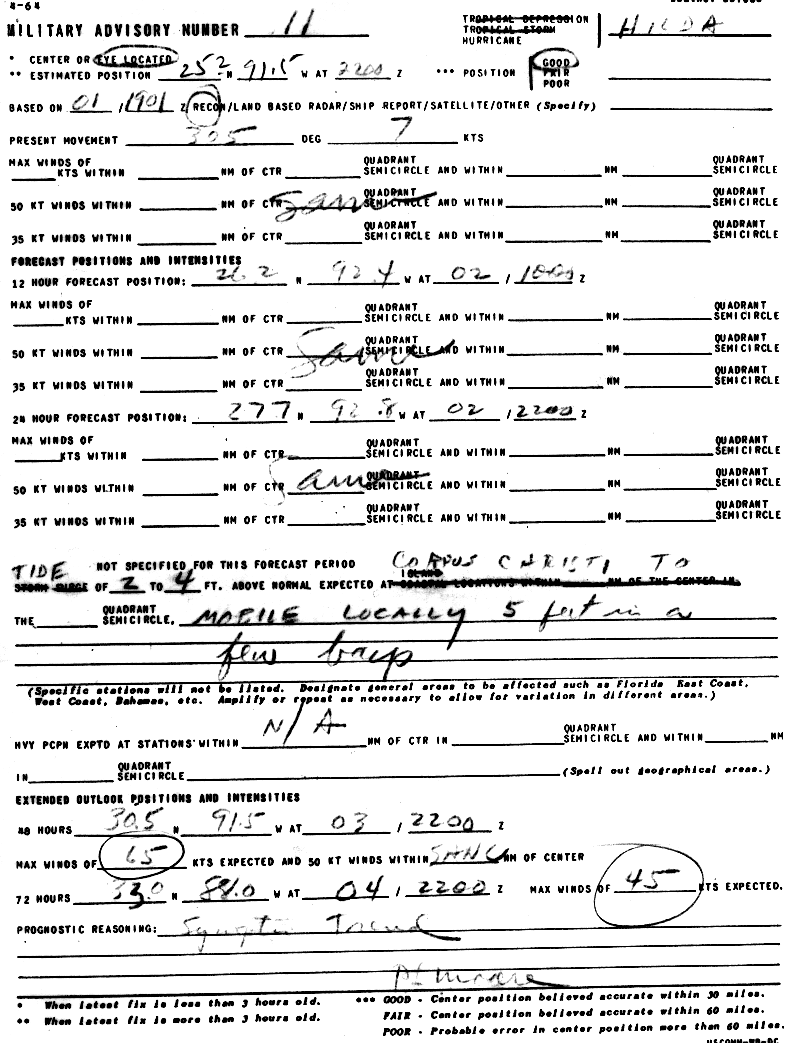 4-64
MILITARY ADVISORY NUMBER 11
TROPICAL DEPRESSION
TROPICAL STORM
HURRICANE HILDA
* CENTER OR EYE LOCATED
** ESTIMATED POSITION 25.2 N 91.5 W AT 2200 Z *** POSITION GOOD
FAIR
POOR
BASED ON 01 / 1901 Z RECON/LAND BASED RADAR/SHIP REPORT/SATELLITE/OTHER (Specify)
PRESENT MOVEMENT 305 DEG 7 KTS
MAX WINDS OF QUADRANT QUADRANT
KTS WITHIN NM OF CTR SEMICIRCLE AND WITHIN NM SEMICIRCLE
QUADRANT QUADRANT
50 KT WINDS WITHIN NM OF CTR Same SEMICIRCLE AND WITHIN NM SEMICIRCLE
QUADRANT QUADRANT
35 KT WINDS WITHIN NM OF CTR SEMICIRCLE AND WITHIN NM SEMICIRCLE
FORECAST POSITIONS AND INTENSITIES
12 HOUR FORECAST POSITION: 26.2 N 92.4 W AT 02 / 1000 Z
MAX WINDS OF QUADRANT QUADRANT
KTS WITHIN NM OF CTR SEMICIRCLE AND WITHIN NM SEMICIRCLE
QUADRANT QUADRANT
50 KT WINDS WITHIN NM OF CTR Same SEMICIRCLE AND WITHIN NM SEMICIRCLE
QUADRANT QUADRANT
35 KT WINDS WITHIN NM OF CTR SEMICIRCLE AND WITHIN NM SEMICIRCLE
24 HOUR FORECAST POSITION: 277 N 92.8 W AT 02 / 2200 Z
MAX WINDS OF QUADRANT QUADRANT
KTS WITHIN NM OF CTR SEMICIRCLE AND WITHIN NM SEMICIRCLE
QUADRANT QUADRANT
50 KT WINDS WITHIN NM OF CTR Same SEMICIRCLE AND WITHIN NM SEMICIRCLE
QUADRANT QUADRANT
35 KT WINDS WITHIN NM OF CTR SEMICIRCLE AND WITHIN NM SEMICIRCLE
TIDE NOT SPECIFIED FOR THIS FORECAST PERIOD CORPUS CHRISTI TO
ISLAND
STORM SURGE OF 2 TO 4 FT. ABOVE NORMAL EXPECTED AT COASTAL LOCATIONS WITHIN NM OF THE CENTER IN
QUADRANT
THE SEMICIRCLE, MOBILE LOCALLY 5 feet in a
few bays
(Specific stations will not be listed. Designate general areas to be affected such as Florida East Coast,
West Coast, Bahamas, etc. Amplify or repeat as necessary to allow for variation in different areas.)
N/A QUADRANT
HVY PCPN EXPTD AT STATIONS WITHIN NM OF CTR IN SEMICIRCLE AND WITHIN NM
QUADRANT
IN SEMICIRCLE (Spell out geographical areas.)
EXTENDED OUTLOOK POSITIONS AND INTENSITIES
48 HOURS 30.5 N 91.5 W AT 03 / 2200 Z
MAX WINDS OF 65 KTS EXPECTED AND 50 KT WINDS WITHIN NM OF CENTER
72 HOURS 33.0 N 88.0 W AT 04 / 2200 Z MAX WINDS OF 45 KTS EXPECTED.
PROGNOSTIC REASONING: Trend
* When latest fix is less than 3 hours old.
** When latest fix is more than 3 hours old.
*** GOOD - Center position believed accurate within 30 miles.
FAIR - Center position believed accurate within 60 miles.
POOR - Probable error in center position more than 60 miles.
USCOMM-WB-DC